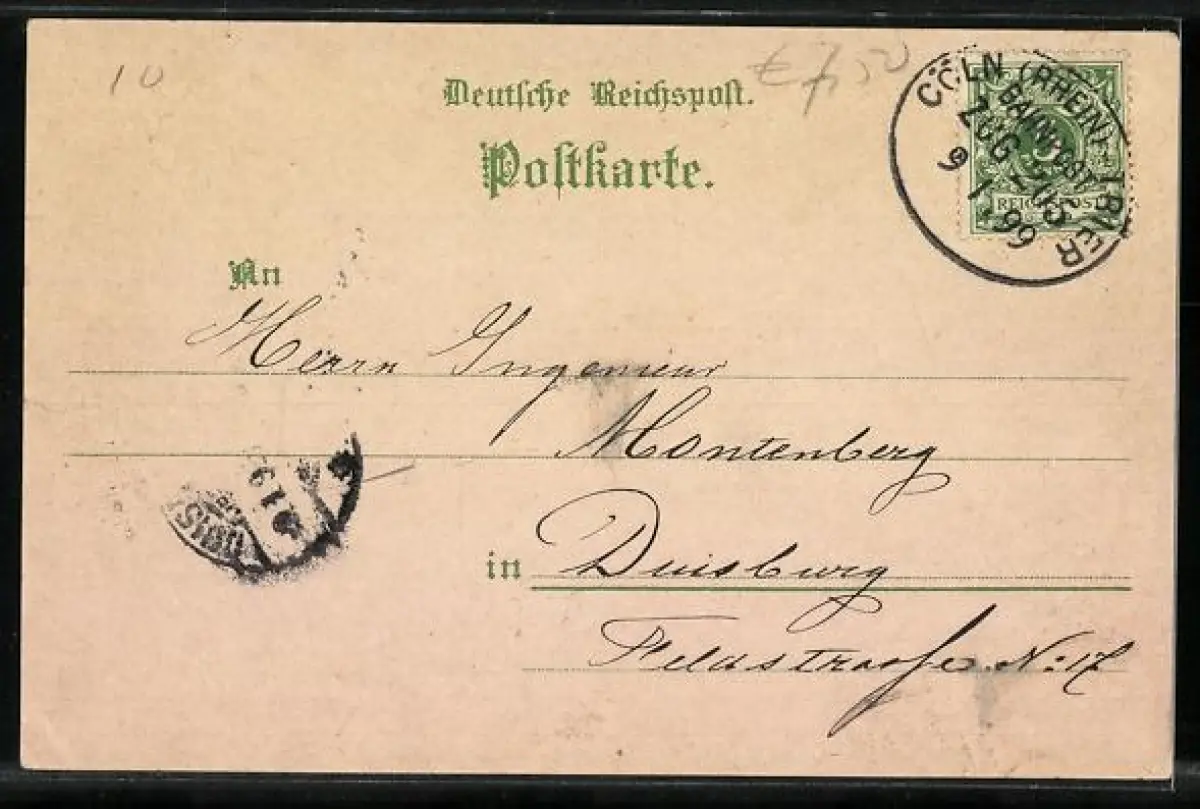 10
€ 7,50
Deutsche Reichspost.
Postkarte.
CÖLN (RHEIN)-TRIER
BAHNPOST
ZUG 205
9 1 99
REICHSPOST
An
Herrn Ingenieur
Montenberg
in Duisburg
Feldstrasse No: 17